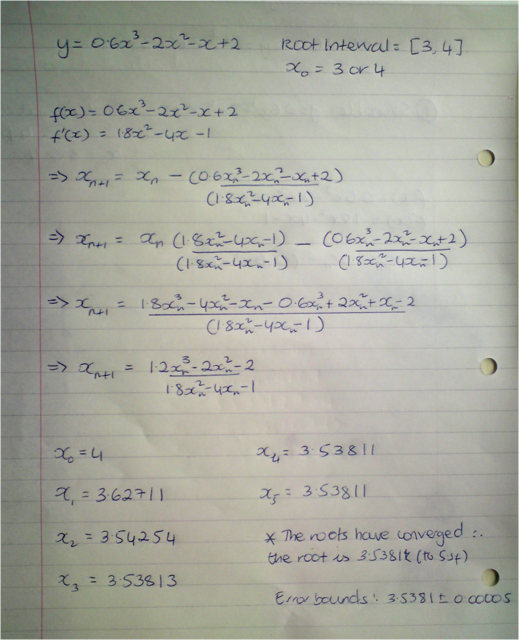 y = 0.6x³-2x²-x+2
Root Interval = [3,4]
x₀ = 3 or 4
f(x) = 0.6x³-2x²-x+2
f'(x) = 1.8x²-4x-1
=> xₙ₊₁ = xₙ - (0.6xₙ³-2xₙ²-xₙ+2)
(1.8xₙ²-4xₙ-1)
=> xₙ₊₁ = xₙ (1.8xₙ²-4xₙ-1) - (0.6xₙ³-2xₙ²-xₙ+2)
(1.8xₙ²-4xₙ-1) (1.8xₙ²-4xₙ-1)
=> xₙ₊₁ = 1.8xₙ³-4xₙ²-xₙ-0.6xₙ³+2xₙ²+xₙ-2
(1.8xₙ²-4xₙ-1)
=> xₙ₊₁ = 1.2xₙ³-2xₙ²-2
1.8xₙ²-4xₙ-1
x₀ = 4
x₁ = 3.62711
x₂ = 3.54254
x₃ = 3.53813
x₄ = 3.53811
x₅ = 3.53811
* The roots have converged ∴
the root is (to 5sf)
Error bounds: 3.5381 ± 0.00005